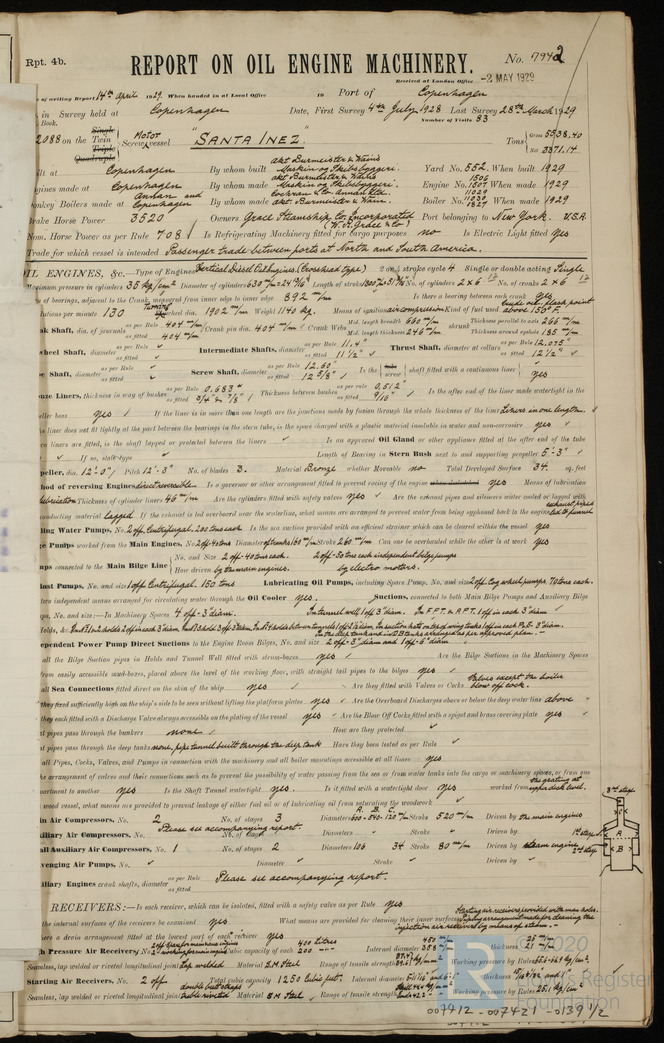 Rpt. 4b.
REPORT ON OIL ENGINE MACHINERY.
No. 7942
Received at London Office -2 MAY 1929
of writing Report 14th April 1929. When handed in at Local Office 19 Port of Copenhagen
in Survey held at Copenhagen Date, First Survey 4th July 1928 Last Survey 28th March 1929
Book. Number of Visits 83
2088 on the Single Twin Triple Quadruple Motor Screw vessel "SANTA INEZ" Tons Gross 5538.40
Net 3371.14
built at Copenhagen By whom built Akt Burmeister & Wains Maskin og Skibsbyggeri. Yard No. 552. When built 1929
Engines made at Copenhagen By whom made Akt. Burmeister & Wains Maskin og Skibsbyggeri. Engine No. 1507 When made 1929
Donkey Boilers made at Annan and Copenhagen By whom made Cochran & Co Annan Ltd. Akt. Burmeister & Wain. Boiler No. When made 1929
Brake Horse Power 3520 Owners Grace Steamship Co. Incorporated (W. R. Grace & Co) Port belonging to New York. U.S.A.
Nom. Horse Power as per Rule 708 Is Refrigerating Machinery fitted for cargo purposes no Is Electric Light fitted Yes
Trade for which vessel is intended Passenger trade between ports at North and South America.
OIL ENGINES, &c.—Type of Engines Vertical Diesel Oil Engines (Crosshead type) 2 or 4 stroke cycle 4 Single or double acting Single
Maximum pressure in cylinders 35 kg/cm2 Diameter of cylinders 630 m/m = 24 13/16" Length of stroke No. of cylinders 2 x 6 No. of cranks 2 x 6
of bearings, adjacent to the Crank, measured from inner edge to inner edge 892 m/m Is there a bearing between each crank yes
Revolutions per minute 130 Flywheel dia. 1902 m/m Weight 1140 kg. Means of ignition air compression Kind of fuel used Crude oil, flash point above 150° F.
Crank Shaft, dia. of journals as per Rule 404 m/m as fitted 404 m/m Crank pin dia. 404 m/m Crank Webs Mid. length breadth 660 m/m Mid. length thickness 246 m/m shrunk Thickness parallel to axis 266 m/m Thickness around eyehole 185 m/m
Flywheel Shaft, diameter as per Rule as fitted Intermediate Shafts, diameter as per Rule 11.4" as fitted 11 1/2" Thrust Shaft, diameter at collars as per Rule 12.075" as fitted 12 1/2"
Tube Shaft, diameter as per Rule as fitted Screw Shaft, diameter as per Rule 12.60 as fitted 12 5/8" Is the tube screw shaft fitted with a continuous liner yes
Bronze Liners, thickness in way of bushes as per Rule 0.683" as fitted 3/4" & 7/8" Thickness between bushes as per rule 0.512" as fitted 9/16" Is the after end of the liner made watertight in the
propeller boss yes If the liner is in more than one length are the junctions made by fusion through the whole thickness of the liner Liners in one length.
the liner does not fit tightly at the part between the bearings in the stern tube, is the space charged with a plastic material insoluble in water and non-corrosive yes
liners are fitted, is the shaft lapped or protected between the liners Is an approved Oil Gland or other appliance fitted at the after end of the tube
If so, state type Length of Bearing in Stern Bush next to and supporting propeller 5'-3"
Propeller, dia. 12'-0" Pitch 12'-3" No. of blades 3. Material Bronze whether Moveable no Total Developed Surface 34. sq. feet
Method of reversing Engines direct reversible Is a governor or other arrangement fitted to prevent racing of the engine yes Means of lubrication
Thickness of cylinder liners 46 m/m Are the cylinders fitted with safety valves yes Are the exhaust pipes and silencers water cooled or lagged with
conducting material lagged. If the exhaust is led overboard near the waterline, what means are arranged to prevent water from being syphoned back to the engine exhaust pipes led to funnel
Cooling Water Pumps, No. 2 off Centrifugal. 200 tons each Is the sea suction provided with an efficient strainer which can be cleared within the vessel yes
Bilge Pumps worked from the Main Engines, No. 2 off 40 tons Diameter Stroke 260 m/m Can one be overhauled while the other is at work yes
Pumps connected to the Main Bilge Line No. and Size 2 off-40 tons each. 2 off-50 tons each independent bilge pumps
How driven by the main engines. by electro motors.
Ballast Pumps, No. and size 1 off Centrifugal. 150 tons Lubricating Oil Pumps, including Spare Pump, No. and size 2 off cog wheel pumps 70 tons each.
two independent means arranged for circulating water through the Oil Cooler yes. Suctions, connected to both Main Bilge Pumps and Auxiliary Bilge
Pumps, No. and size:—In Machinery Spaces 4 off - 3" diam. In tunnel well 1 off 3" diam. In F.P.T. & A.P.T. 1 off in each 3" diam
Independent Power Pump Direct Suctions to the Engine Room Bilges, No. and size 2 off-3" diam and 1 off-5" diam
all the Bilge Suction pipes in Holds and Tunnel Well fitted with strum-boxes yes Are the Bilge Suctions in the Machinery Spaces
from easily accessible mud-boxes, placed above the level of the working floor, with straight tail pipes to the bilges yes
all Sea Connections fitted direct on the skin of the ship yes Are they fitted with Valves or Cocks Valves except the boiler blow off cock.
they fixed sufficiently high on the ship's side to be seen without lifting the platform plates yes Are the Overboard Discharges above or below the deep water line above
they each fitted with a Discharge Valve always accessible on the plating of the vessel yes Are the Blow Off Cocks fitted with a spigot and brass covering plate yes
pipes pass through the bunkers none How are they protected
pipes pass through the deep tanks none, pipe tunnel built through the deep tank Have they been tested as per Rule
all Pipes, Cocks, Valves, and Pumps in connection with the machinery and all boiler mountings accessible at all times yes
the arrangement of valves and their connections such as to prevent the possibility of water passing from the sea or from water tanks into the cargo or machinery spaces, or from one
compartment to another yes Is the Shaft Tunnel watertight yes. Is it fitted with a watertight door yes worked from the grating at upper deck level.
wood vessel, what means are provided to prevent leakage of either fuel oil or lubricating oil from saturating the woodwork
Main Air Compressors, No. 2 No. of stages 3 Diameters A. B. C. 600-540-120 m/m Stroke 520 m/m Driven by the main engines
Auxiliary Air Compressors, No. Please see accompanying report. No. of stages Diameters Stroke Driven by
Small Auxiliary Air Compressors, No. 1 No. of stages 2 Diameters 106 34 Stroke 80 m/m Driven by steam engine
Scavenging Air Pumps, No. Diameter Stroke Driven by
Auxiliary Engines crank shafts, diameter as per Rule as fitted Please see accompanying report.
3rd stage
1st stage A
2nd stage B
RECEIVERS:—Is each receiver, which can be isolated, fitted with a safety valve as per Rule yes
the internal surfaces of the receivers be examined yes What means are provided for cleaning their inner surfaces Starting air receivers provided with man holes. Piping arrangement made for cleaning the injection air receivers by means of steam.
there a drain arrangement fitted at the lowest part of each receiver yes
High Pressure Air Receivers, No. Cubic capacity of each 400 Litres 200 Internal diameter thickness
Seamless, lap welded or riveted longitudinal joint lap welded Material S.M. Steel Range of tensile strength Working pressure by Rules
Starting Air Receivers, No. 2 off Total cubic capacity 1250 Cubic feet. Internal diameter thickness
Seamless, lap welded or riveted longitudinal joint double butt straps double riveted Material S.M. Steel Range of tensile strength Working pressure by Rules 25.1 kg/cm2
© 2020
Lloyd's Register
Foundation
007412 - 007421 - 0139 1/2